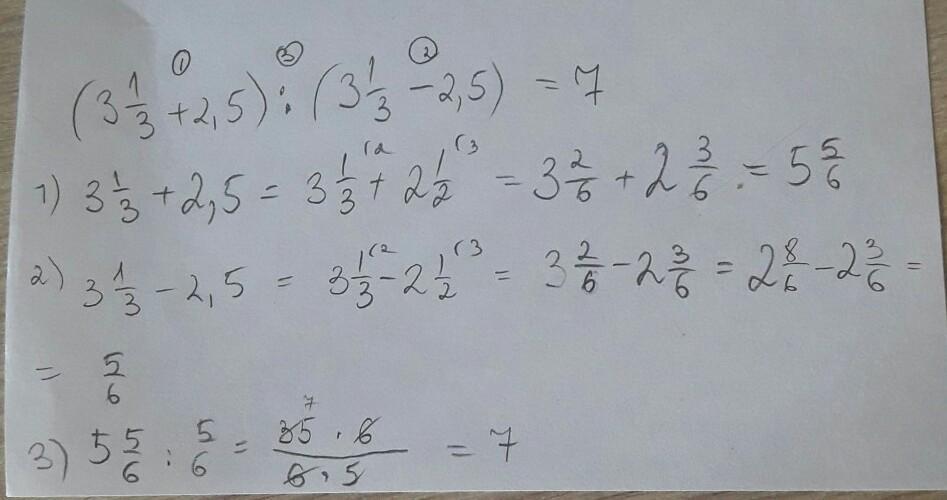 ① ③ ②
(3 1/3 + 2,5) : (3 1/3 − 2,5) = 7
1) 3 1/3 + 2,5 = 3 1/3 (2 + 2 1/2 (3 = 3 2/6 + 2 3/6 = 5 5/6
2) 3 1/3 − 2,5 = 3 1/3 (2 − 2 1/2 (3 = 3 2/6 − 2 3/6 = 2 8/6 − 2 3/6 =
= 5/6
7
3) 5 5/6 : 5/6 = 35 · 6 / 6 · 5 = 7